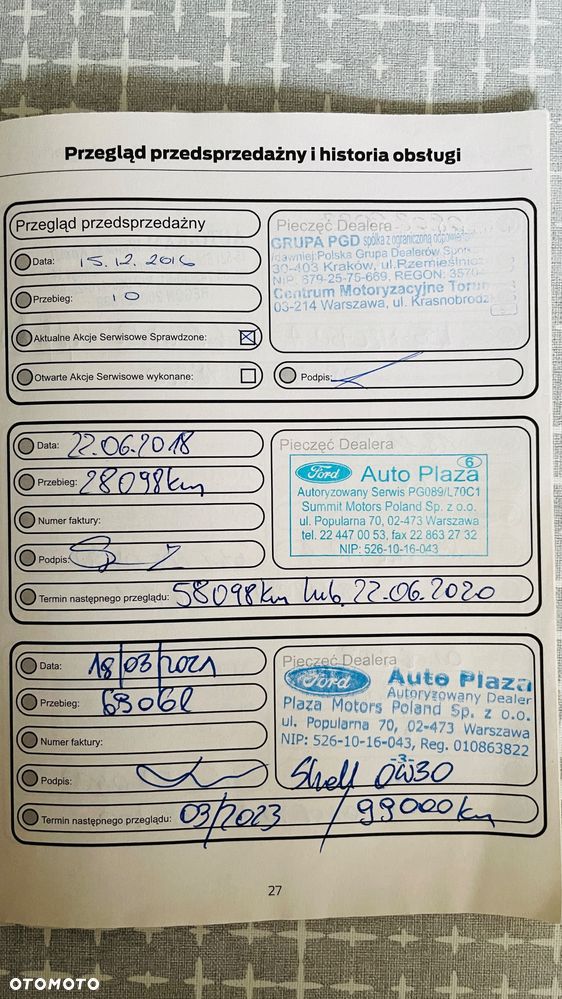 Przegląd przedsprzedażny i historia obsługi
Przegląd przedsprzedażny
Data: 15.12.2016
Przebieg: 10
Aktualne Akcje Serwisowe Sprawdzone:
Otwarte Akcje Serwisowe wykonane:
Pieczęć Dealera
GRUPA PGD spółka z ograniczoną
Polska Grupa Dealerów
30-403 Kraków, ul.
NIP: 679-25-75-669, REGON:
Centrum Motoryzacyjne
03-214 Warszawa, ul.
Podpis:
Data: 22.06.2018
Przebieg: 28098km
Numer faktury:
Podpis:
Pieczęć Dealera
6
Ford Auto Plaza
Autoryzowany Serwis PG089/L70C1
Summit Motors Poland Sp. z o.o.
ul. Popularna 70, 02-473 Warszawa
tel. 22 447 00 53, fax 22 863 27 32
NIP: 526-10-16-043
Termin następnego przeglądu: 58098km lub 22.06.2020
Data: 18/03/2021
Przebieg:
Numer faktury:
Podpis:
Pieczęć Dealera
Ford Auto Plaza
Autoryzowany Dealer
Plaza Motors Poland Sp. z o.o.
ul. Popularna 70, 02-473 Warszawa
NIP: 526-10-16-043, Reg. 010863822
-3-
Shell 0W30
Termin następnego przeglądu: 03/2023 / 99000km
27
OTOMOTO